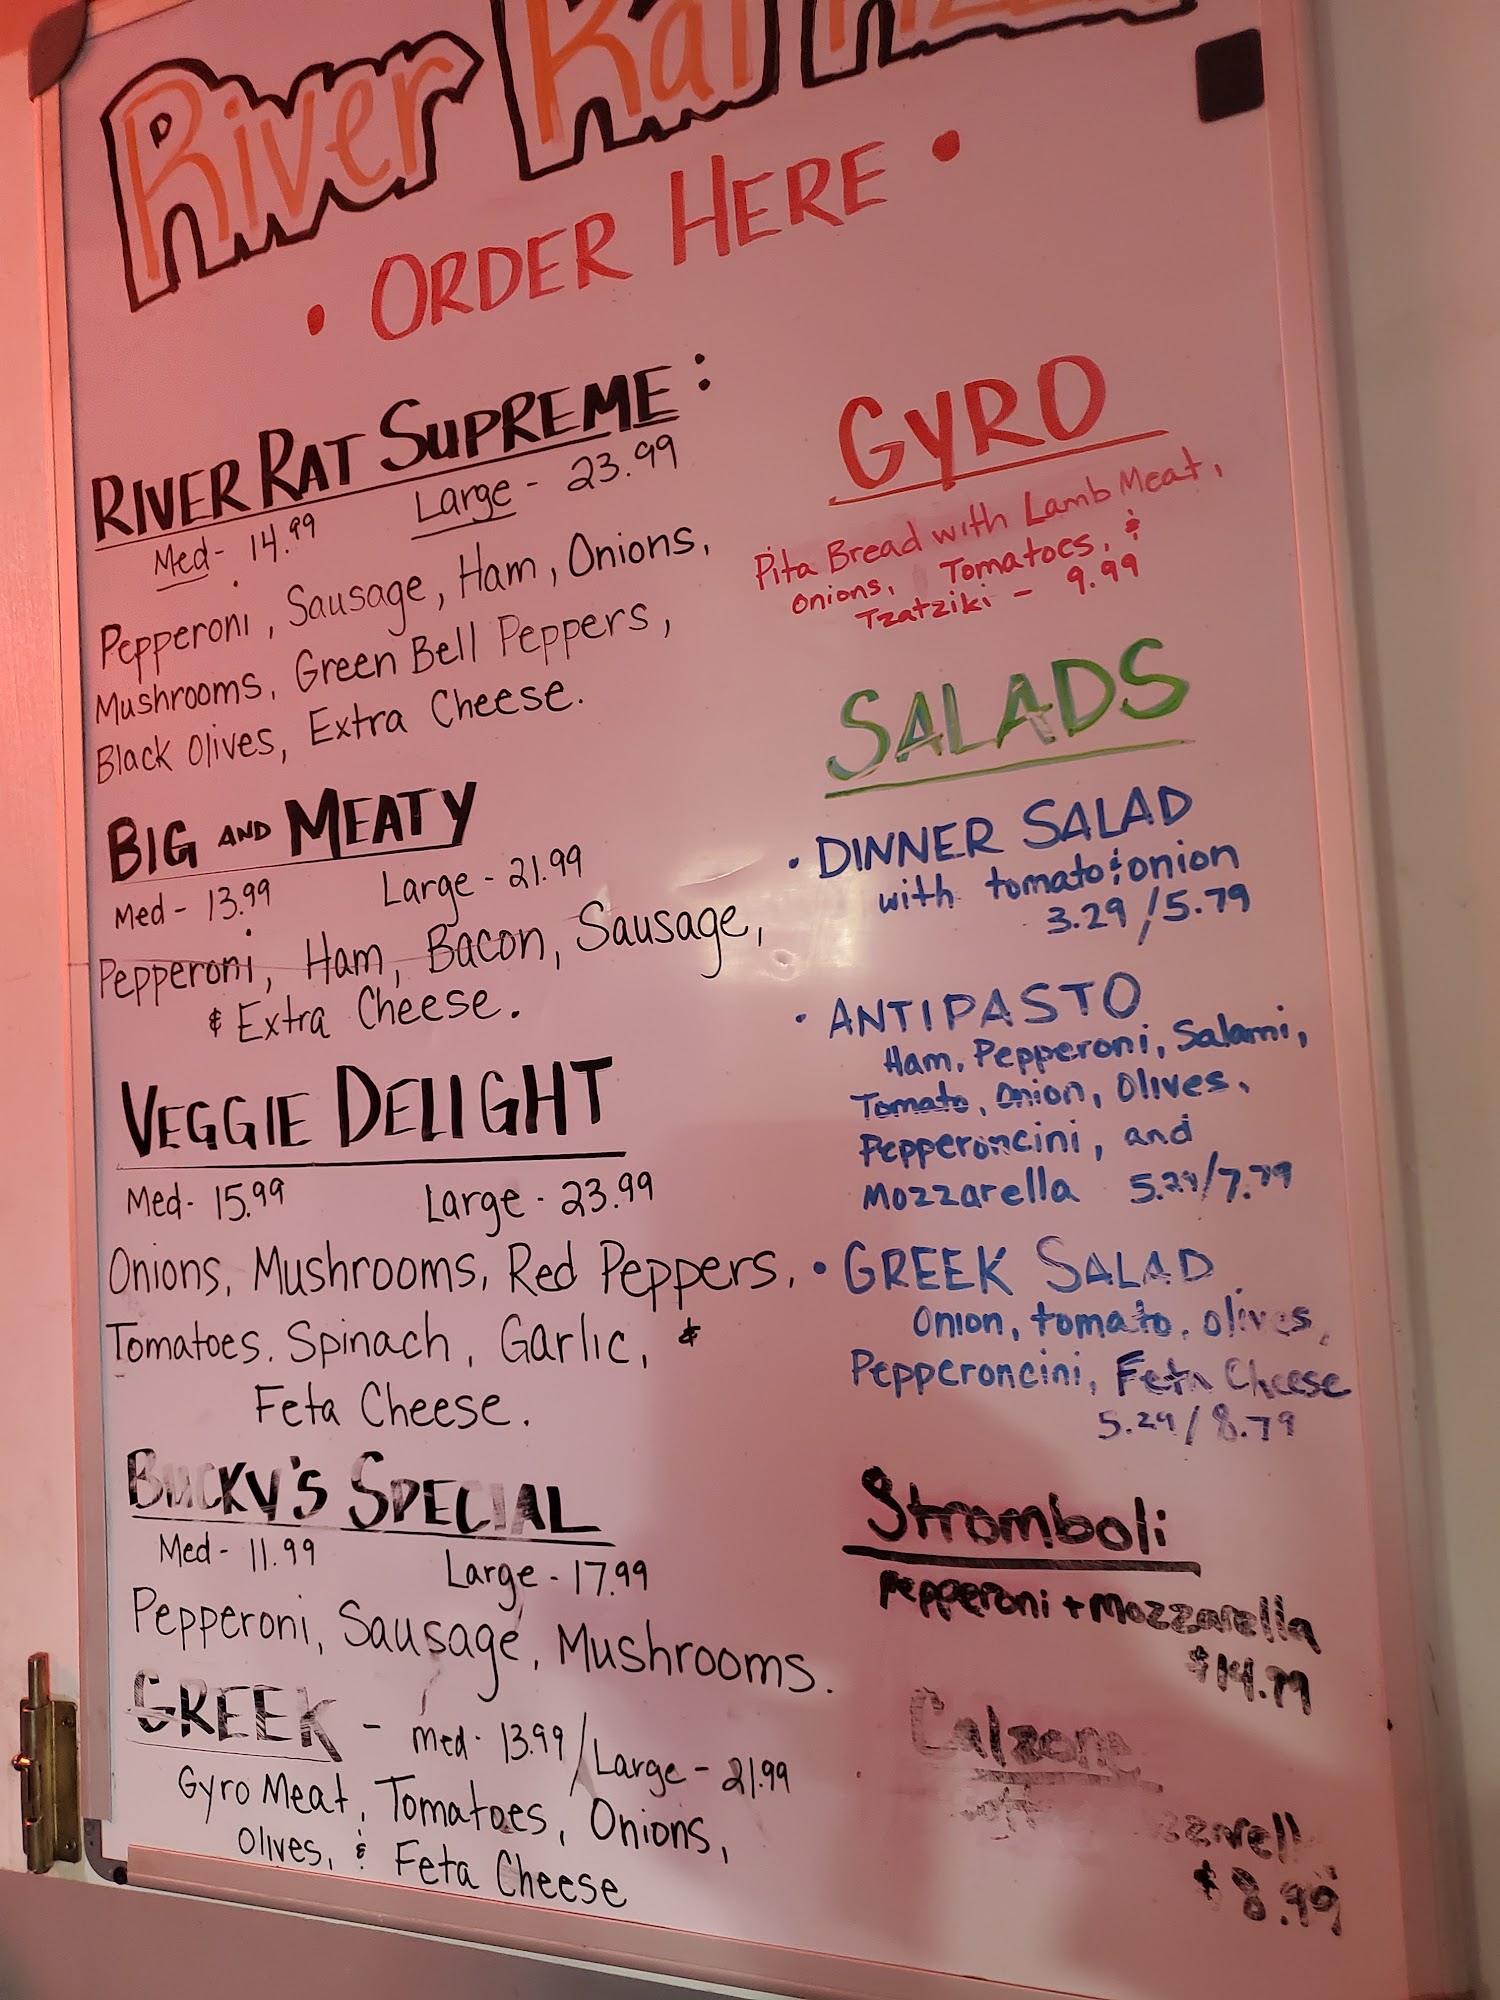 River Rat Pizza
• ORDER HERE •
RIVER RAT SUPREME:
Med - 14.99 Large - 23.99
Pepperoni, Sausage, Ham, Onions,
Mushrooms, Green Bell Peppers,
Black Olives, Extra Cheese.
BIG AND MEATY
Med - 13.99 Large - 21.99
Pepperoni, Ham, Bacon, Sausage,
& Extra Cheese.
VEGGIE DELIGHT
Med - 15.99 Large - 23.99
Onions, Mushrooms, Red Peppers,
Tomatoes, Spinach, Garlic, &
Feta Cheese.
BUCKY'S SPECIAL
Med - 11.99 Large - 17.99
Pepperoni, Sausage, Mushrooms.
GREEK - Med - 13.99/Large - 21.99
Gyro Meat, Tomatoes, Onions,
Olives, & Feta Cheese
GYRO
Pita Bread with Lamb Meat,
Onions, Tomatoes, &
Tzatziki - 9.99
SALADS
• DINNER SALAD
with tomato & onion
3.29/5.79
• ANTIPASTO
Ham, Pepperoni, Salami,
Tomato, Onion, Olives,
Pepperoncini, and
Mozzarella 5.29/7.79
• GREEK SALAD
Onion, tomato, olives,
Pepperoncini, Feta Cheese
5.29/8.79
Stromboli
Pepperoni + Mozzarella
$14.99
Calzone
$8.99